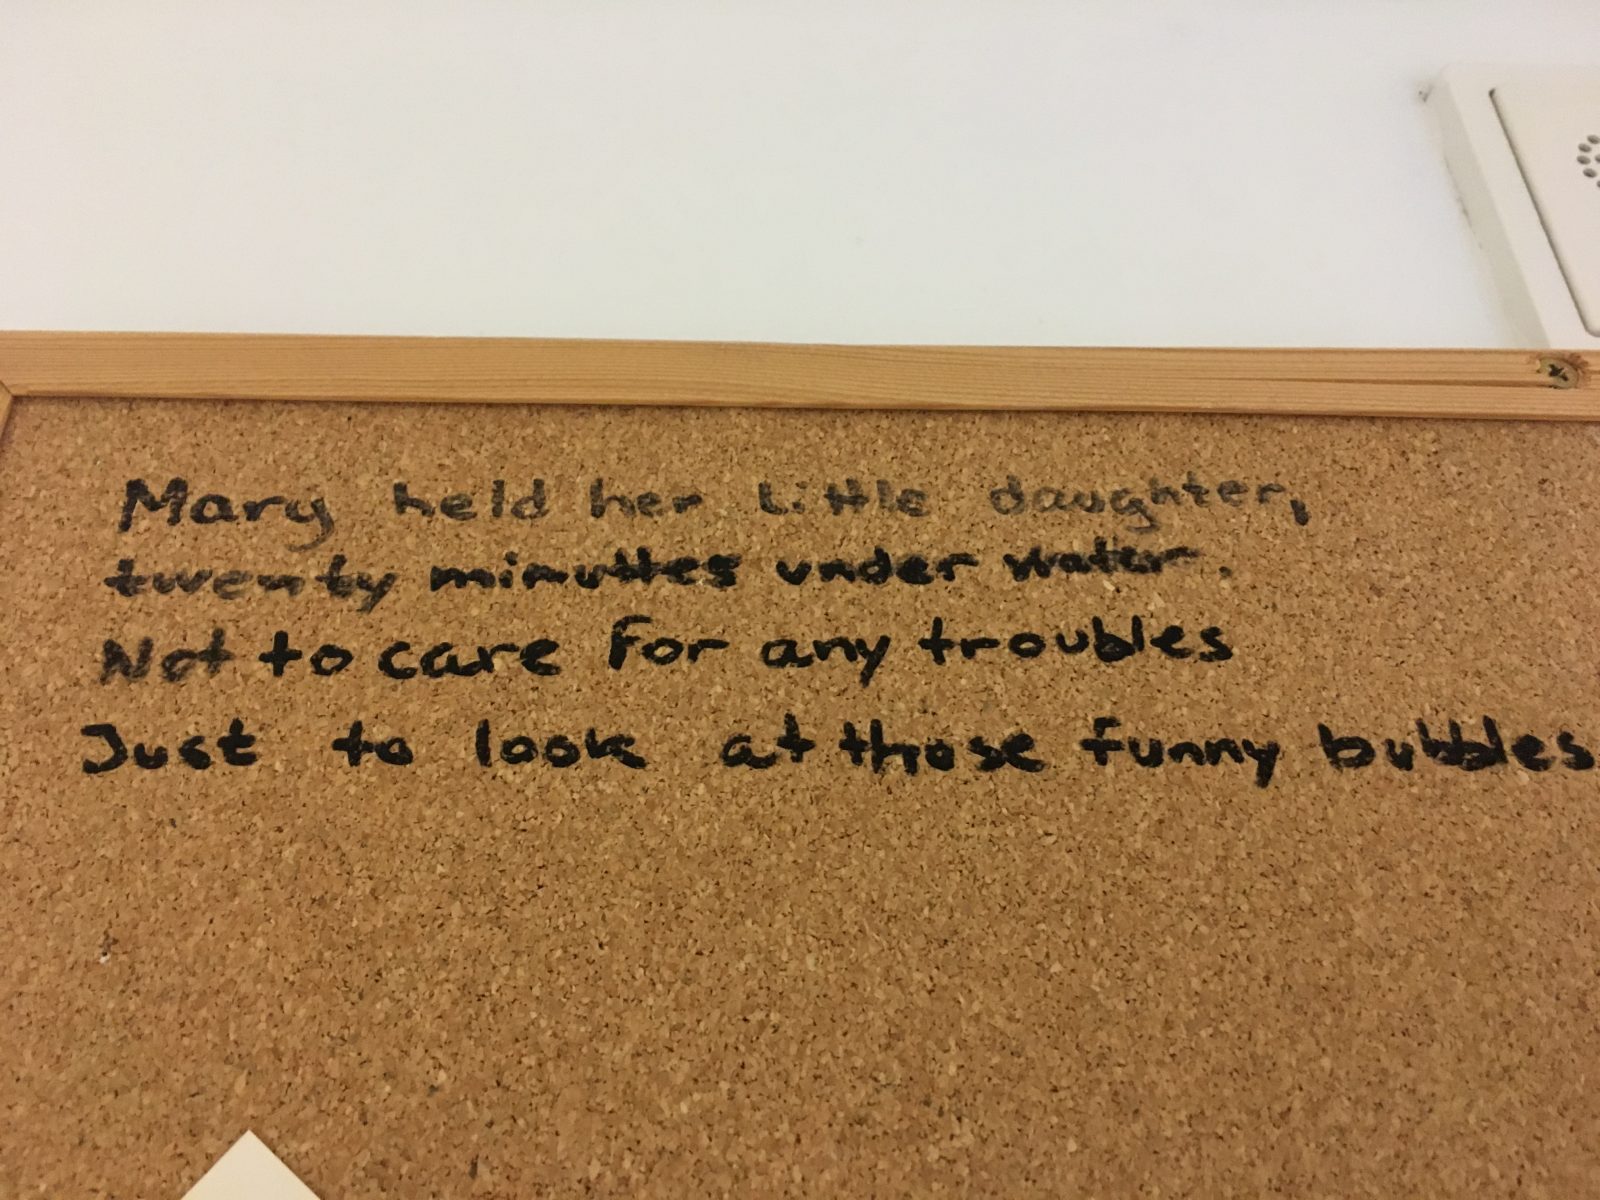 Mary held her little daughter,
twenty minuttes under water.
Not to care for any troubles
Just to look at those funny bubbles